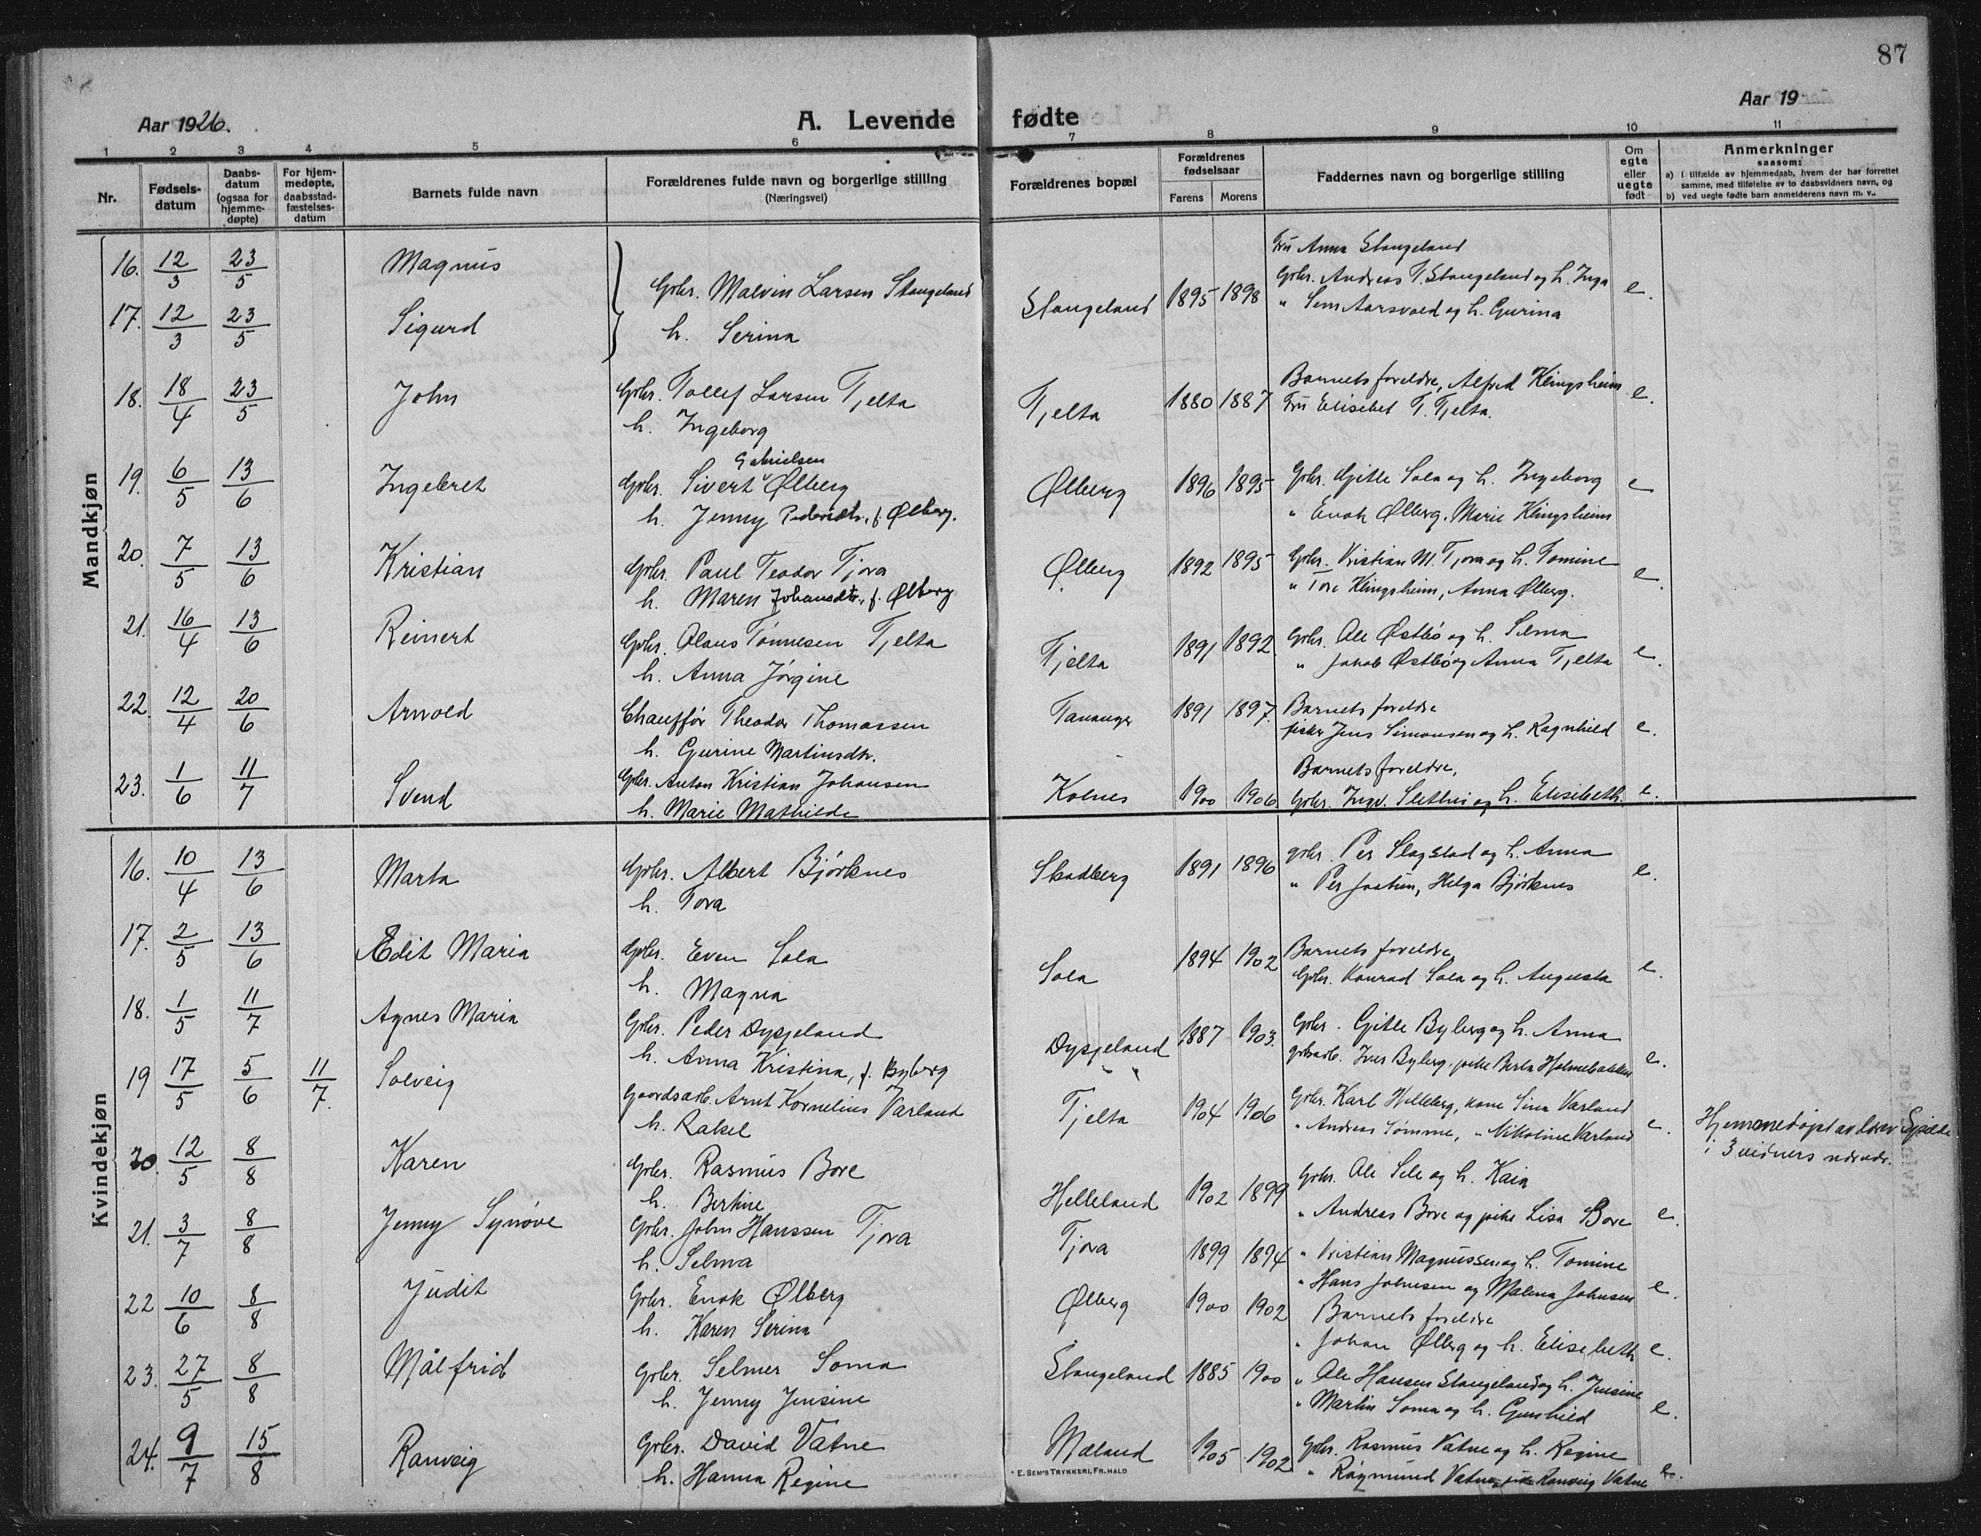 87
Aar 1926.
A. Levende fødte
Aar 19
1 2 3 4 5 6 7 8 9 10 11
Nr.
Fødsels-
datum
Daabs-
datum
(ogsaa for
hjemme-
døpte)
For hjem-
medøpte,
daabsstad-
fæstelses-
datum
Barnets fulde navn
Forældrenes fulde navn og borgerlige stilling
(Næringsvei)
Forældrenes bopæl
Forældrenes
fødselsaar
Farens Morens
Faddernes navn og borgerlige stilling
Om
egte
eller
uegte
født
Anmerkninger
saasom:
a) i tilfælde av hjemmedaab, hvem der har forrettet
samme, med tilføielse av to daabsvidners navn, og
b) ved uegte fødte barn anmelderens navn m. v.
Mandkjøn
16. 12/3 23/5 Magnus
Gbr. Malvin Larsen Stangeland
Stangeland 1895 1898
Fru Anna Stangeland
Gbr. Andreas T. Stangeland og h. Inga e.
17. 12/3 23/5 Sigurd
h. Serina
" Sem Aarsvold og h. Gurina
18. 18/4 23/5 John
Gbr. Tollef Larsen Tjelta
h. Ingeborg
Tjelta 1880 1887
Barnets foreldre, Alfred Klingsheim
Fru Elisebet T. Tjelta. e.
19. 6/5 13/6 Ingebret
Gabrielsen
Gbr. Sivert Ølberg
h. Jenny Pedersdtr. f. Ølberg.
Ølberg 1896 1895
Gbr. Gitle Sola og h. Ingeborg
" Enok Ølberg, Marie Klingsheim e
20. 7/5 13/6 Kristian
Gbr. Paul Teodor Tjora
h. Maren Johansdtr. f. Ølberg
Ølberg 1892 1895
Gbr. Kristian M. Tjora og h. Tomine
" Tore Klingsheim, Anna Ølberg. e.
21. 16/4 13/6 Reinert
Gbr. Olaus Tønnesen Tjelta
h. Anna Jørgine
Tjelta 1891 1892
Gbr. Ole Østbø og h. Selma
" Jakob Østbø og Anna Tjelta e.
22. 12/4 20/6 Arnold
Chauffør Theodor Thomassen
h. Gurine Martinsdtr.
Tananger 1891 1897.
Barnets foreldre
fisker Jens Simonsen og h. Ragnhild e.
23. 1/6 11/7 Svend
Gbr. Anton Kristian Johansen
h. Marie Mathilde
Kolnes 1900 1906
Barnets foreldre,
Gbr. Ingv. Slethei og h. Elisebeth. e.
Kvindekjøn
16. 10/4 13/6 Marta
Gbr. Albert Bjørknes
h. Tora
Skadberg 1891 1896
gbr. Per Slagstad og h. Anna
" Per Joatun, Helga Bjørknes e.
17. 2/5 13/6 Edit Maria
Gbr. Even Sola
h. Magna
Sola 1894 1902
Barnets foreldre,
Gbr. Konrad Sola og h. Augusta e.
18. 1/5 11/7 Agnes Maria
Gbr. Peder Dysjeland
h. Anna Kristina, f. Byberg
Dysjeland 1887 1903.
Gbr. Gitle Byberg og h. Anna
gårdsarb. Iver Byberg, pike Berta Holmebakken e.
19 17/5 5/6 11/7. Solveig
Gaardsarb. Arnt Kornelius Varland
h. Rakel
Tjelta 1904 1906
Gbr. Karl Helleberg, kone Sina Varland
" Andreas Sømme, " Nikoline Varland e.
Hjemmedøpt av
i 3 vidners nærvær.
20. 12/5 8/8 Karen
Gbr. Rasmus Bore
h. Bertine
Helleland 1902 1899
Gbr. Ole Sele og h. Kaia
" Andreas Bore og pike Lisa Bore e.
21. 3/7 8/8 Jenny Synøve
Gbr. John Hanssen Tjora
h. Selma
Tjora 1899 1894
" Kristian Magnussen og h. Tomine
" Hans Johnsen og Malena Johnsen e.
22 10/6 8/8 Judit
Gbr. Enok Ølberg
h. Karen Serina
Ølberg 1900 1902
Barnets foreldre
" Johan Ølberg og h. Elisebeth e.
23. 27/5 8/8 Målfrid
Gbr. Selmer Soma
h. Jenny Jensine
Stangeland 1885 1900
" Ole Hansen Stangeland og h. Jensine
" Martin Soma og h. Gunhild e.
24. 9/7 15/8 Ranveig
Gbr. David Vatne
h. Hanna Regine
Mæland 1905 1902
Gbr. Rasmus Vatne og h. Regine
" Ragmund Vatne, pike Ranveig Vatne e.
* E. SEM'S TRYKKERI, FR.HALD